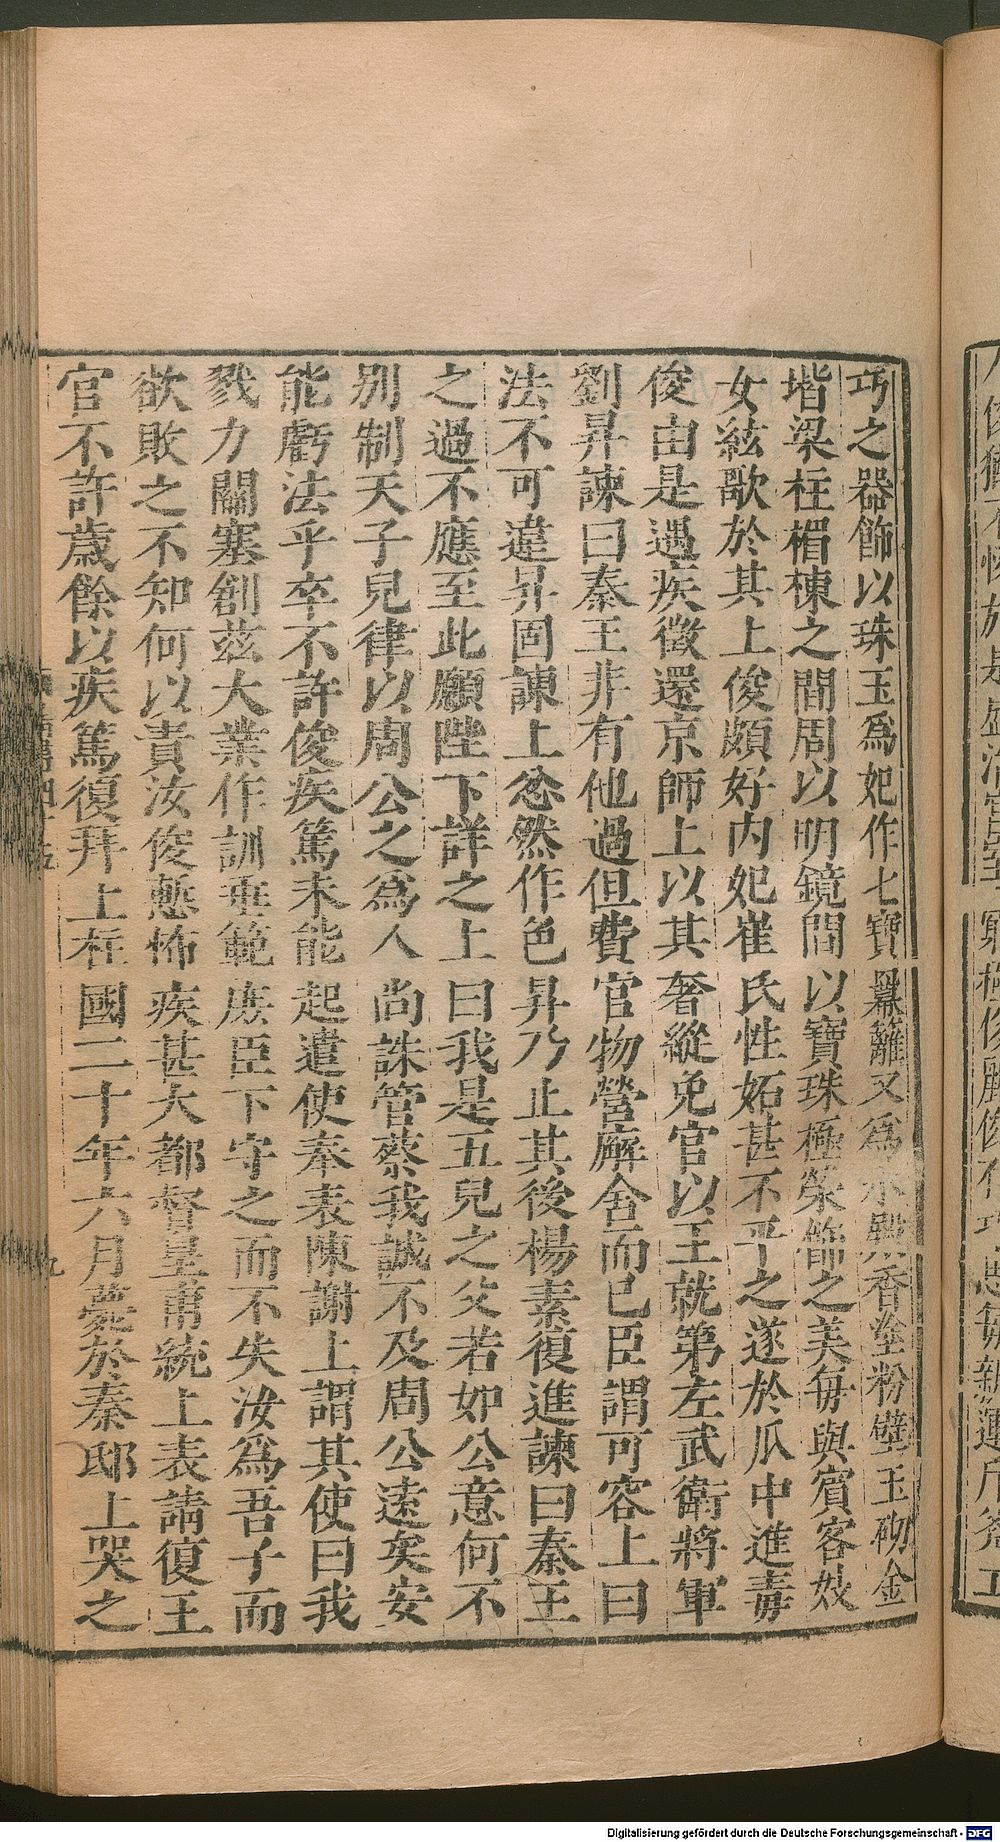 巧之器飾以珠玉爲妃作七寶羃籬又爲水殿香塗粉壁玉砌金
堦梁柱楣棟之間周以明鏡間以寶珠極榮飾之美每與賓客妓
女絃歌於其上俊頗好内妃崔氏性妬甚不平之遂於瓜中進毒
俊由是遇疾徵還京師上以其奢縱免官以王就第左武衛將軍
劉昇諫曰秦王非有他過但費官物營廨舍而已臣謂可容上曰
法不可違昇固諫上忿然作色昇乃止其後楊素復進諫曰秦王
之過不應至此願陛下詳之上曰我是五兒之父若如公意何不
别制天子兒律以周公之爲人尚誅管蔡我誠不及周公遠矣安
能虧法乎卒不許俊疾篤未能起遣使奉表陳謝上謂其使曰我
戮力關塞創兹大業作訓垂範庶臣下守之而不失汝爲吾子而
欲敗之不知何以責汝俊慙怖疾甚大都督皇甫統上表請復王
官不許歲餘以疾篤復拜上柱國二十年六月薨於秦邸上哭之
Digitalisierung gefördert durch die Deutsche Forschungsgemeinschaft - DFG